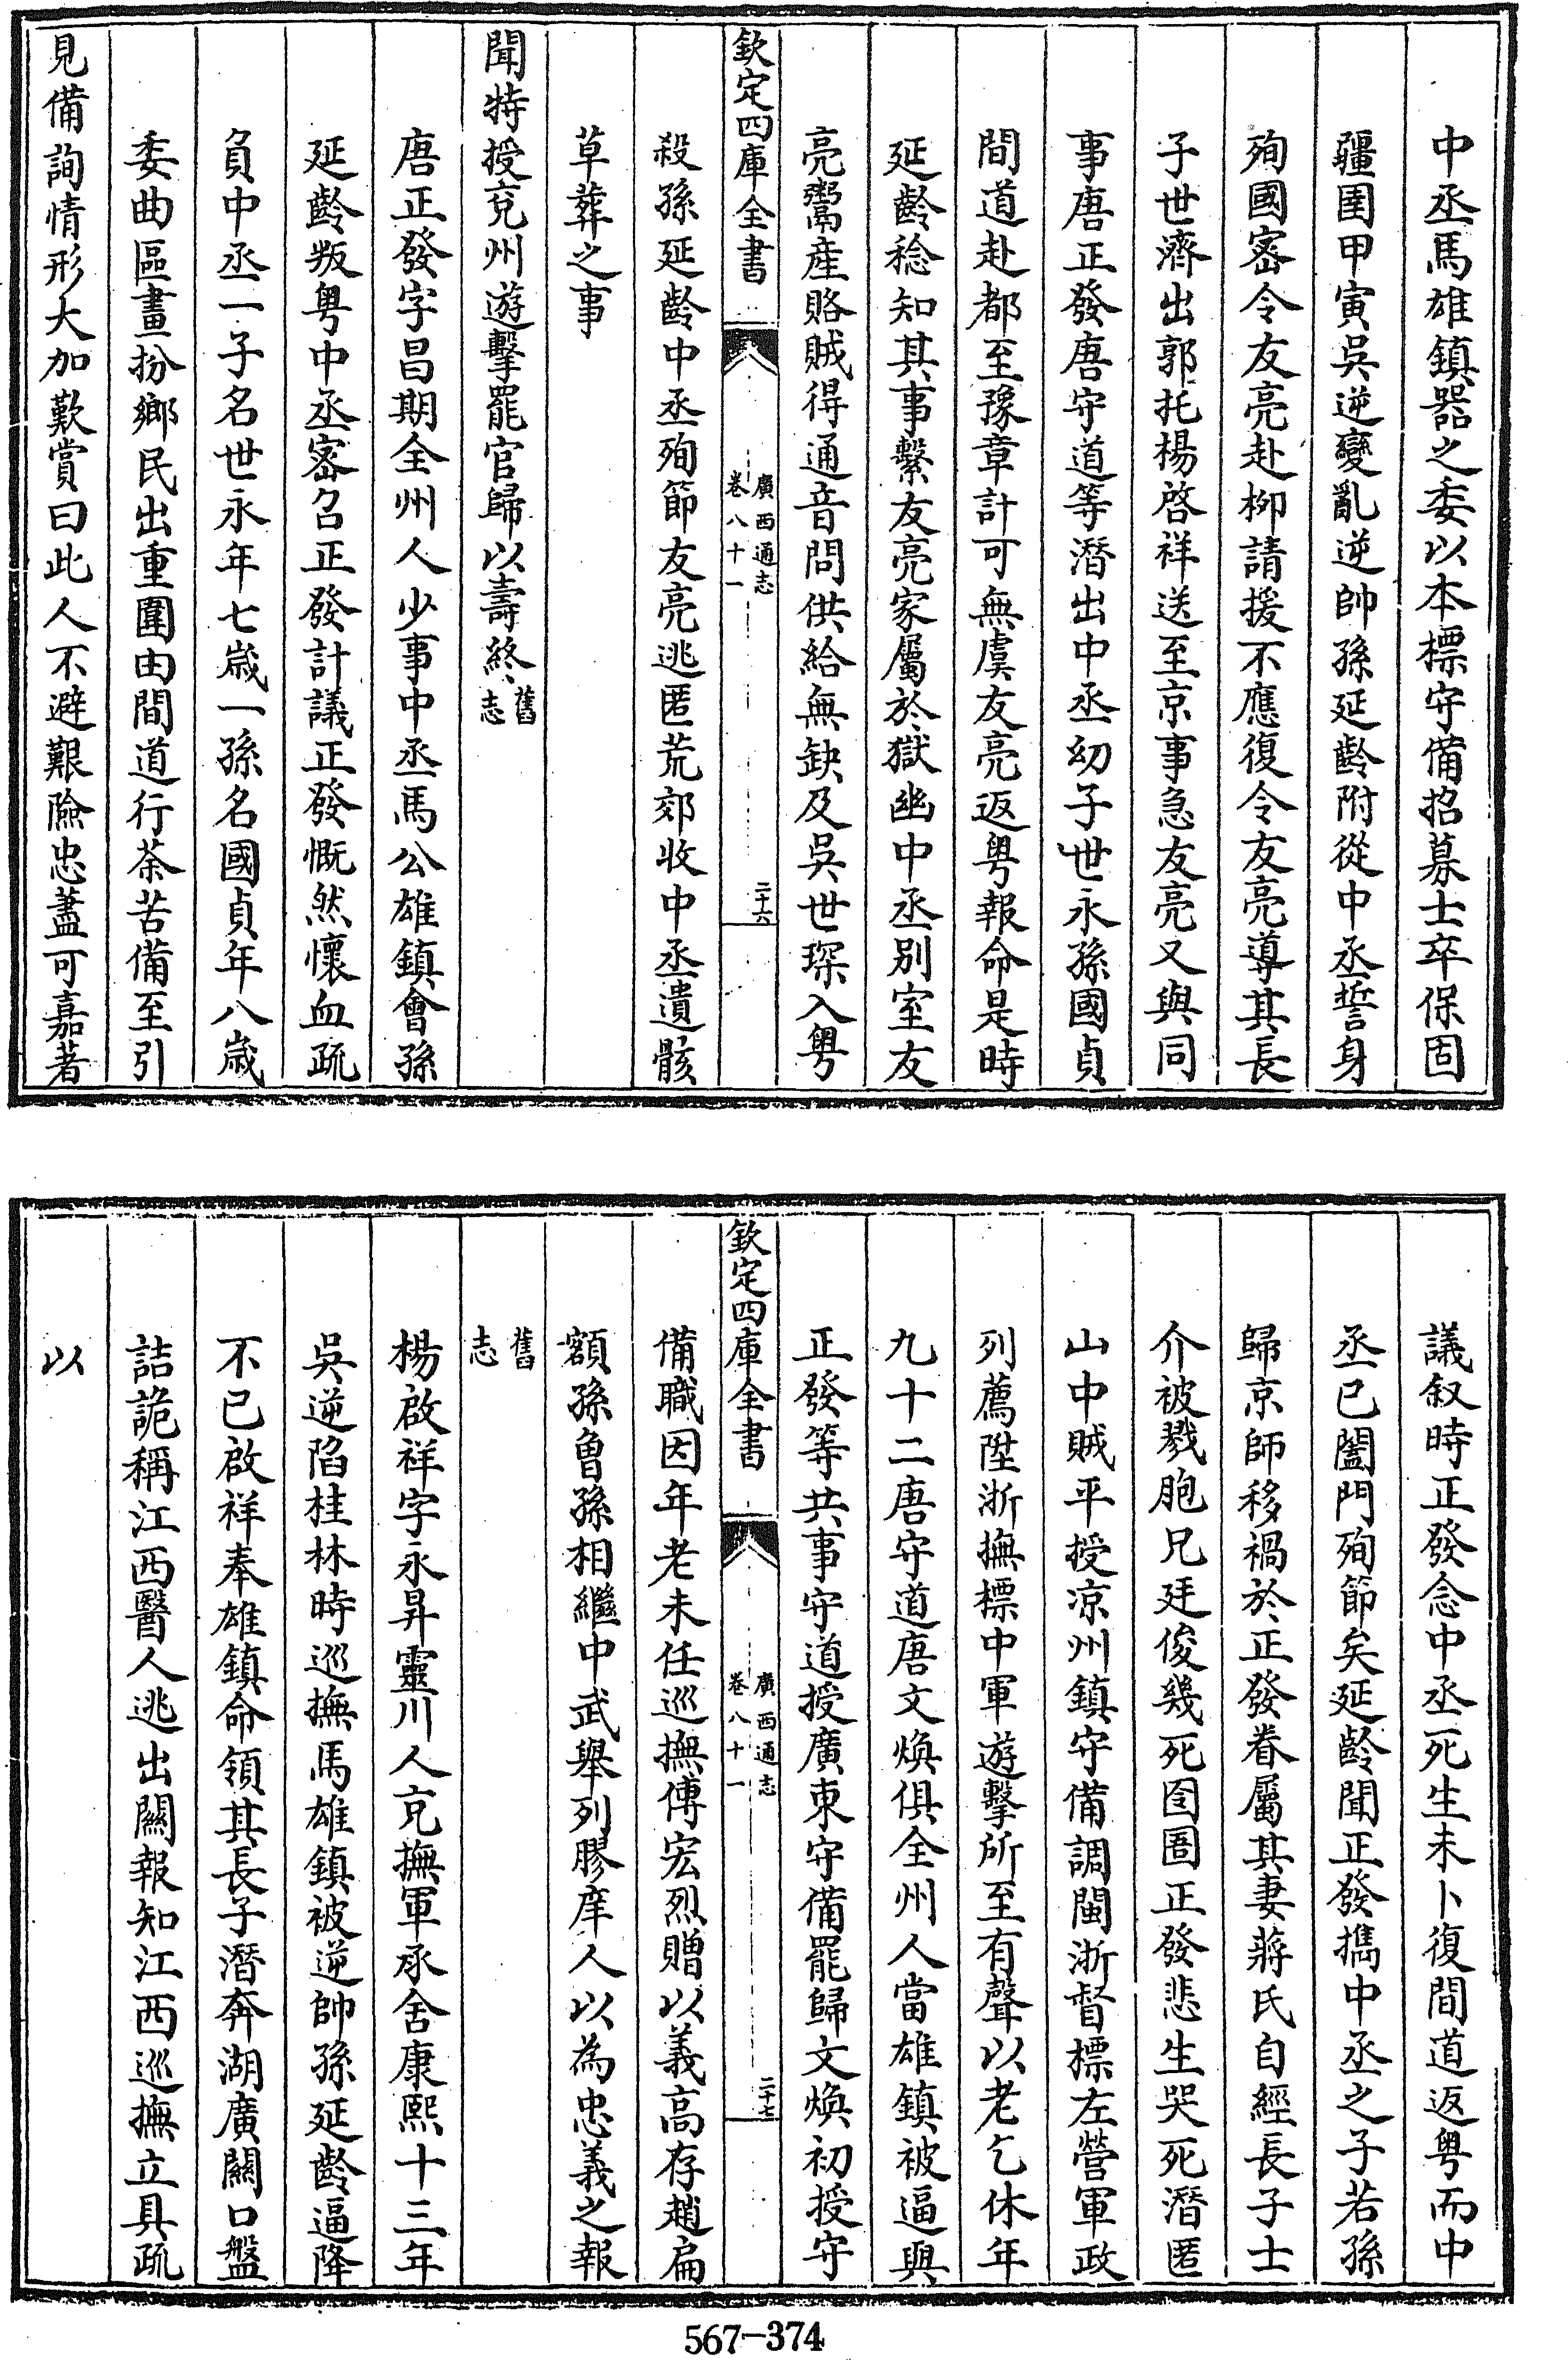 中丞馬雄鎮器之委以本標守備招募士卒保固
疆圉甲寅吳逆變亂逆帥孫延齡附從中丞誓身
殉國密令友亮赴柳請援不應復令友亮導其長
子世濟出郭托楊啓祥送至京事急友亮又與同
事唐正發唐守道等潛出中丞幼子世永孫國貞
間道赴都至豫章計可無虞友亮返粤報命是時
延齡稔知其事繫友亮家屬於獄幽中丞别室友
亮鬻産賂賊得通音問供給無缺及吳世琛入粤
欽定四庫全書
廣西通志
卷八十一
二十六
殺孫延齡中丞殉節友亮逃匿荒郊收中丞遺骸
草葬之事
聞特授兖州遊擊罷官歸以壽終舊志
唐正發字昌期全州人少事中丞馬公雄鎮會孫
延齡叛粤中丞密召正發計議正發慨然懷血疏
負中丞一子名世永年七歲一孫名國貞年八歲
委曲區畫扮鄉民出重圍由間道行荼苦備至引
見備詢情形大加歎賞曰此人不避艱險忠藎可嘉著
議叙時正發念中丞死生未卜復間道返粤而中
丞已闔門殉節矣延齡聞正發擕中丞之子若孫
歸京師移禍於正發眷屬其妻蔣氏自經長子士
介被戮胞兄廷俊幾死囹圄正發悲生哭死潛匿
山中賊平授凉州鎮守備調閩浙督標左營軍政
列薦陞浙撫標中軍遊擊所至有聲以老乞休年
九十二唐守道唐文煥俱全州人當雄鎮被逼與
正發等共事守道授廣東守備罷歸文煥初授守
欽定四庫全書
廣西通志
卷八十一
二十七
備職因年老未任巡撫傅宏烈贈以義高存趙扁
額孫曾孫相繼中武舉列膠庠人以為忠義之報
舊志
楊啟祥字永昇靈川人充撫軍承舍康熙十三年
吳逆陷桂林時巡撫馬雄鎮被逆帥孫延齡逼降
不已啟祥奉雄鎮命領其長子潛奔湖廣關口盤
詰詭稱江西醫人逃出關報知江西巡撫立具疏
以
567-374